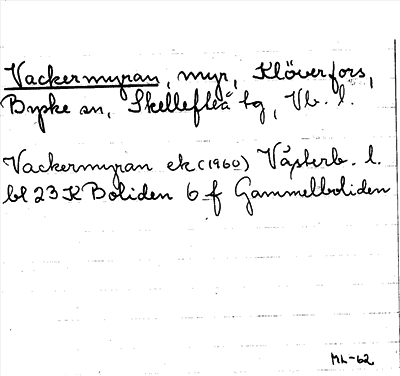 Vackermyran, myr, Klöverfors,
Byske sn, Skellefteå tg, Vb. l.
Vackermyran ek (1960) Västerb. l.
bl 23 K Boliden 6 f Gammelboliden
ML-62